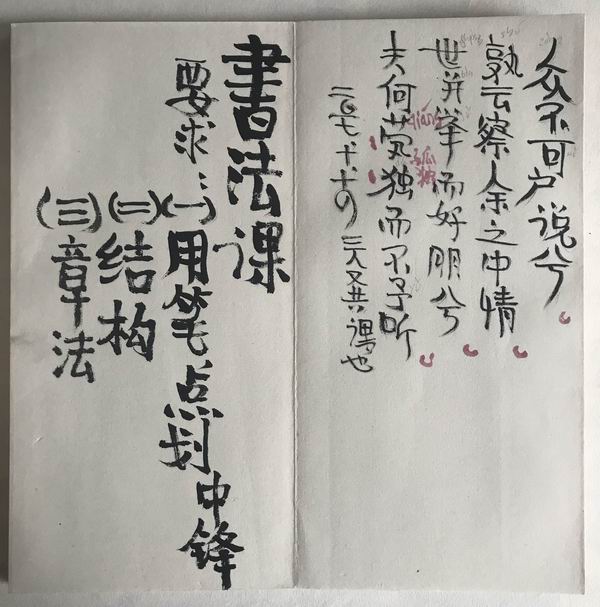 众不可户说兮
孰云察余之中情
世并举而好朋兮
夫何茕独而不予听
qióng
孤独
二〇一七十十四 三人又共课也
書法课
要求：
(一)用笔点划中锋
(二)结构
(三)章法